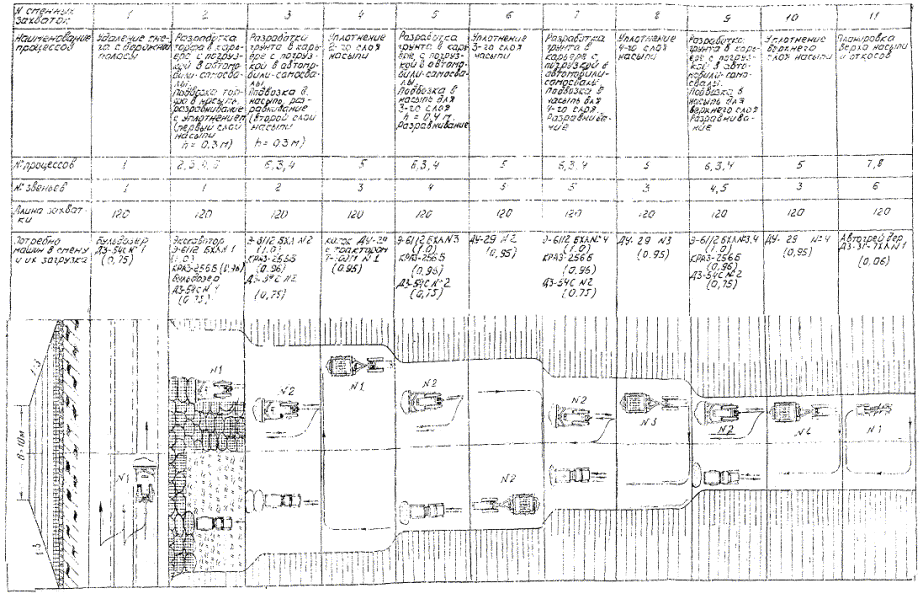 N сменных захваток 1 2 3 4 5 6 7 8 9 10 11
Наименование процессов
Удаление снега с дорожной полосы
Разработка торфа в карьере с погрузкой в автомобили-самосвалы.
Подвозка торфа в насыпь, разравнивание с уплотнением (первый слой насыпи h = 0.3 м)
Разработка грунта в карьере с погрузкой в автомобили-самосвалы
Подвозка в насыпь разравнивание (второй слой насыпи h = 0.3 м)
Уплотнение 2-го слоя насыпи
Разработка грунта в карьере, с погрузкой в автомобили-самосвалы.
Подвозка в насыпь для 3-го слоя h = 0,4 м. Разравнивание
Уплотнение 3-го слоя насыпи
Разработка грунта в карьере с погрузкой в автомобили-самосвалы
Подвозка в насыпь для 4-го слоя. Разравнивание
Уплотнение 4-го слоя насыпи
Разработка грунта в карьере с погрузкой в автомобили-самосвалы.
Подвозка в насыпь для верхнего слоя Разравнивание
Уплотнение верхнего слоя насыпи
Планировка верха насыпи и откосов
N процессов 1 6,3,4 5 6,3,4 5 6,3,4 5 6,3,4 5 7,8
N звеньев 1 1 2 3 4 5 5 3 4,5 3 6
Длина захватки 120 120 120 120 120 120 120 120 120 120 120
Потребно машин в смену и их загрузка
Бульдозер ДЗ-54С N 1 (0,75)
Экскаватор Э-6112 БХЛ N 1 (1.0) КРАЗ-256Б Бульдозер ДЗ-54С N 1 (0,75)
Э-6112 БХЛ N2 (1.0) КРАЗ-256Б (0.96) N2 (0,75)
каток ДУ-29 с трактором N 1 (0.95)
Э-6112 БХЛ N3 (1.0) КРАЗ-256Б (0,96) ДЗ-54С N 2 (0,75)
ДУ-29 N 2 (0,95)
Э-6112 БХЛ N 4 (1.0) КРАЗ-256Б (0.96) ДЗ-54С N2 (0.75)
ДУ-29 N3 (0.95)
Э-6112 БХЛ N3,4 (1.0) КРАЗ-256Б (0,96) ДЗ-54С N 2 (0,75)
ДУ-29 N 4 (0,95)
Автогрейдер N 1 (0,06)
1:3
B=10м
1:3
N1
N1
N2
N1
N2
N2
N2
N2
N1